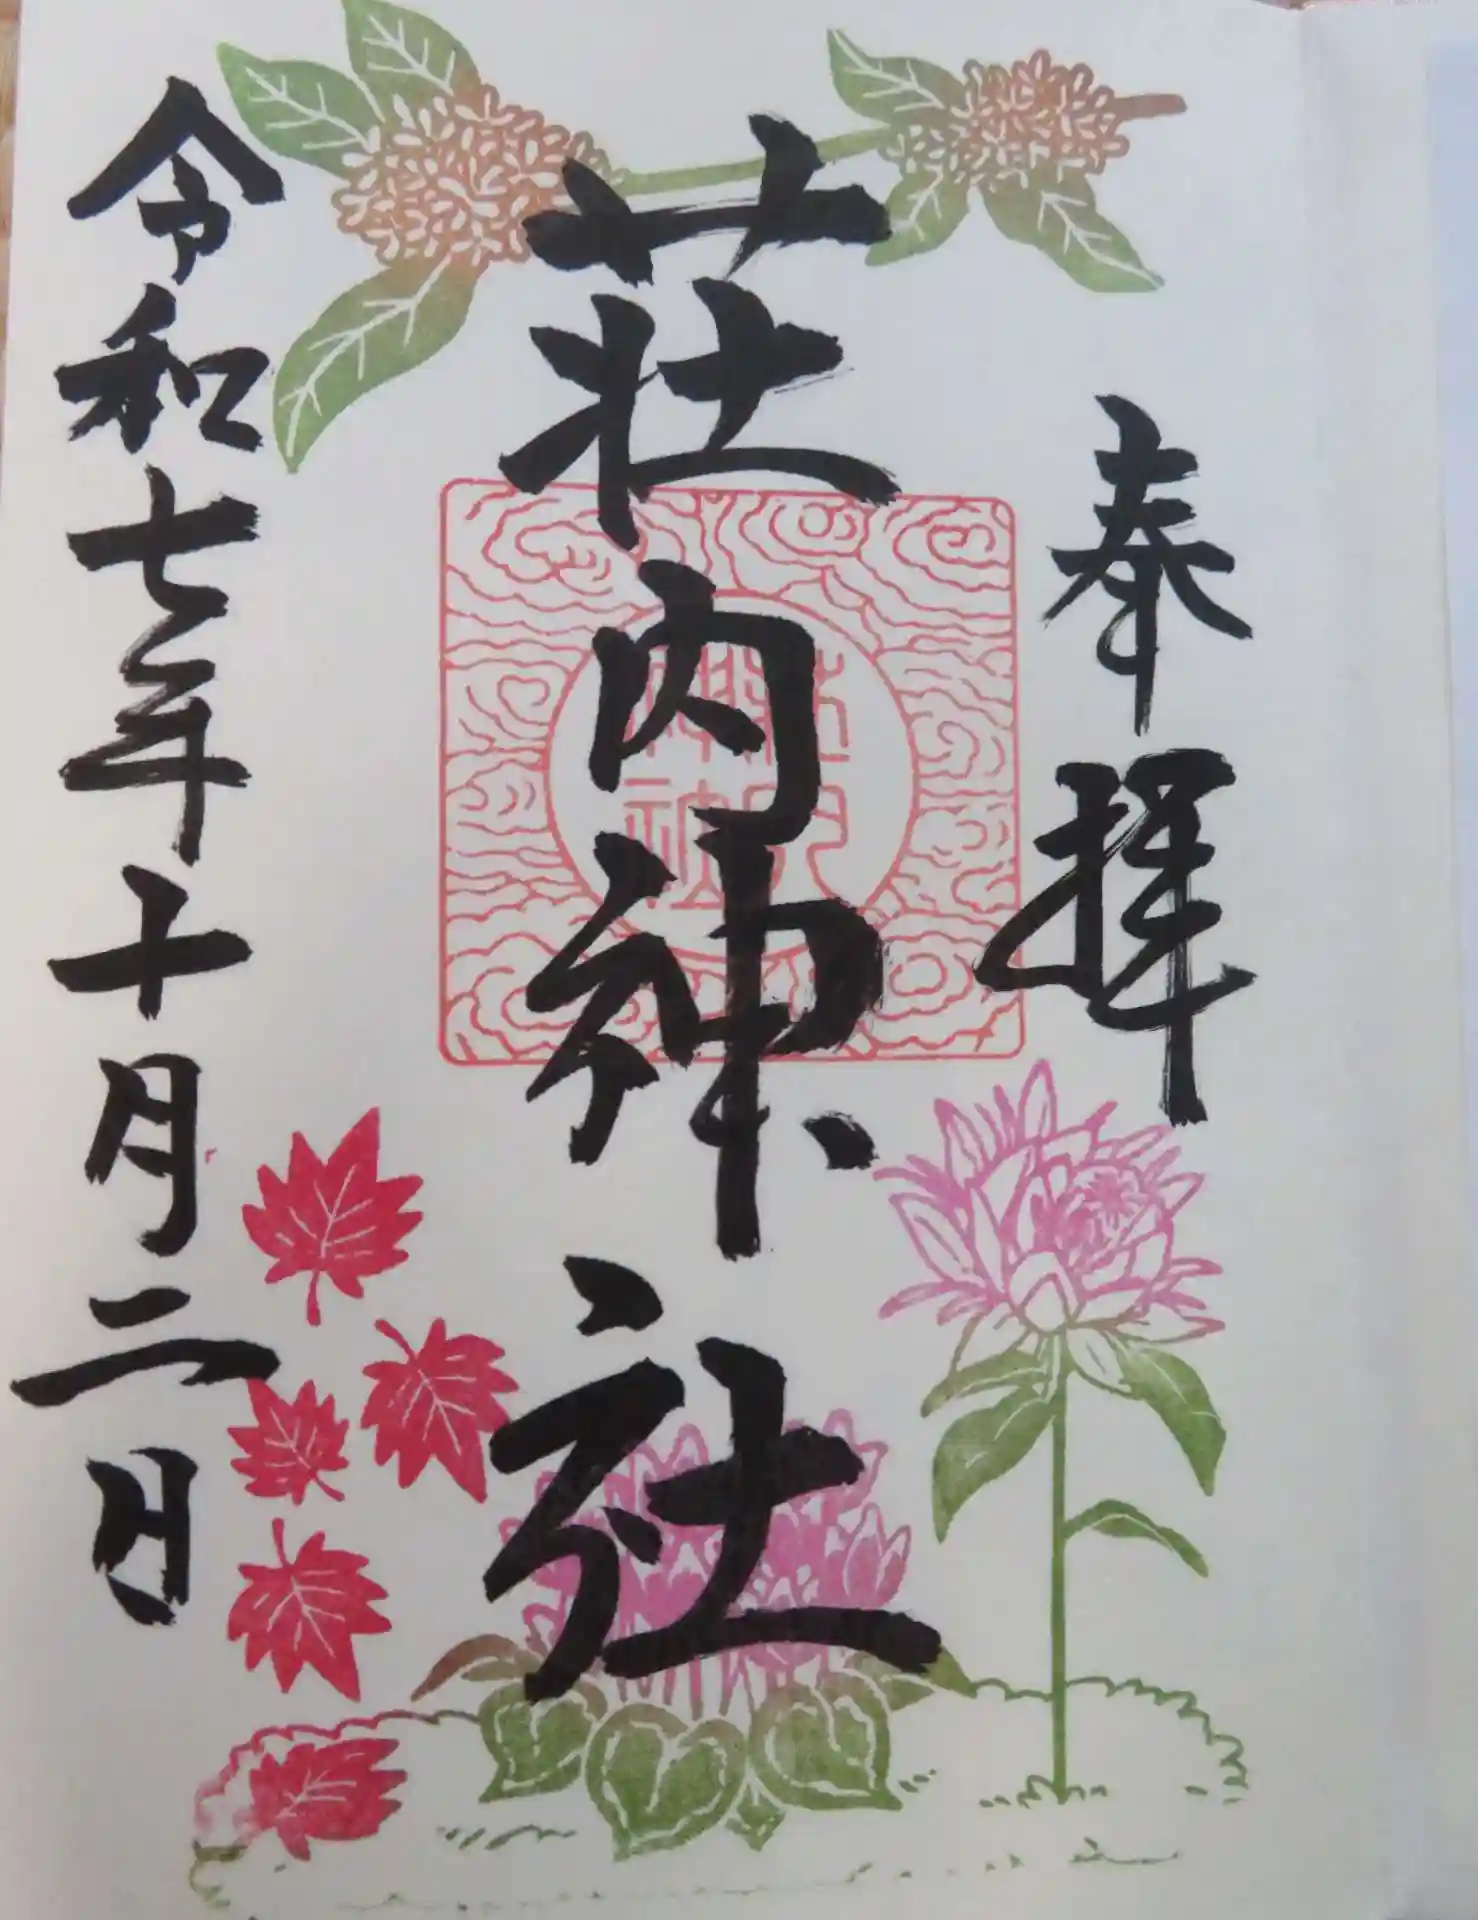 奉拝
荘内神社
令和七年十月二日
荘内
神社